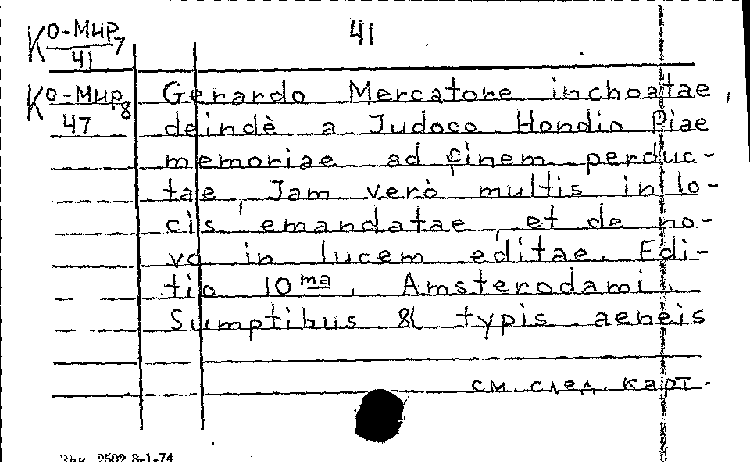 41
Ко-Мир 7
41
Ко-Мир 8
47
Gerardo Mercatore inchoatae,
deindè a Judoco Hondio Piae
memoriae ad finem perduc-
tae, Jam verò multis in lo-
cis emandatae, et de no-
vo in lucem editae. Edi-
tio 10 ma. Amsterodami,
Sumptibus & typis aeneis
см. след. карт.
2502 8-1-74